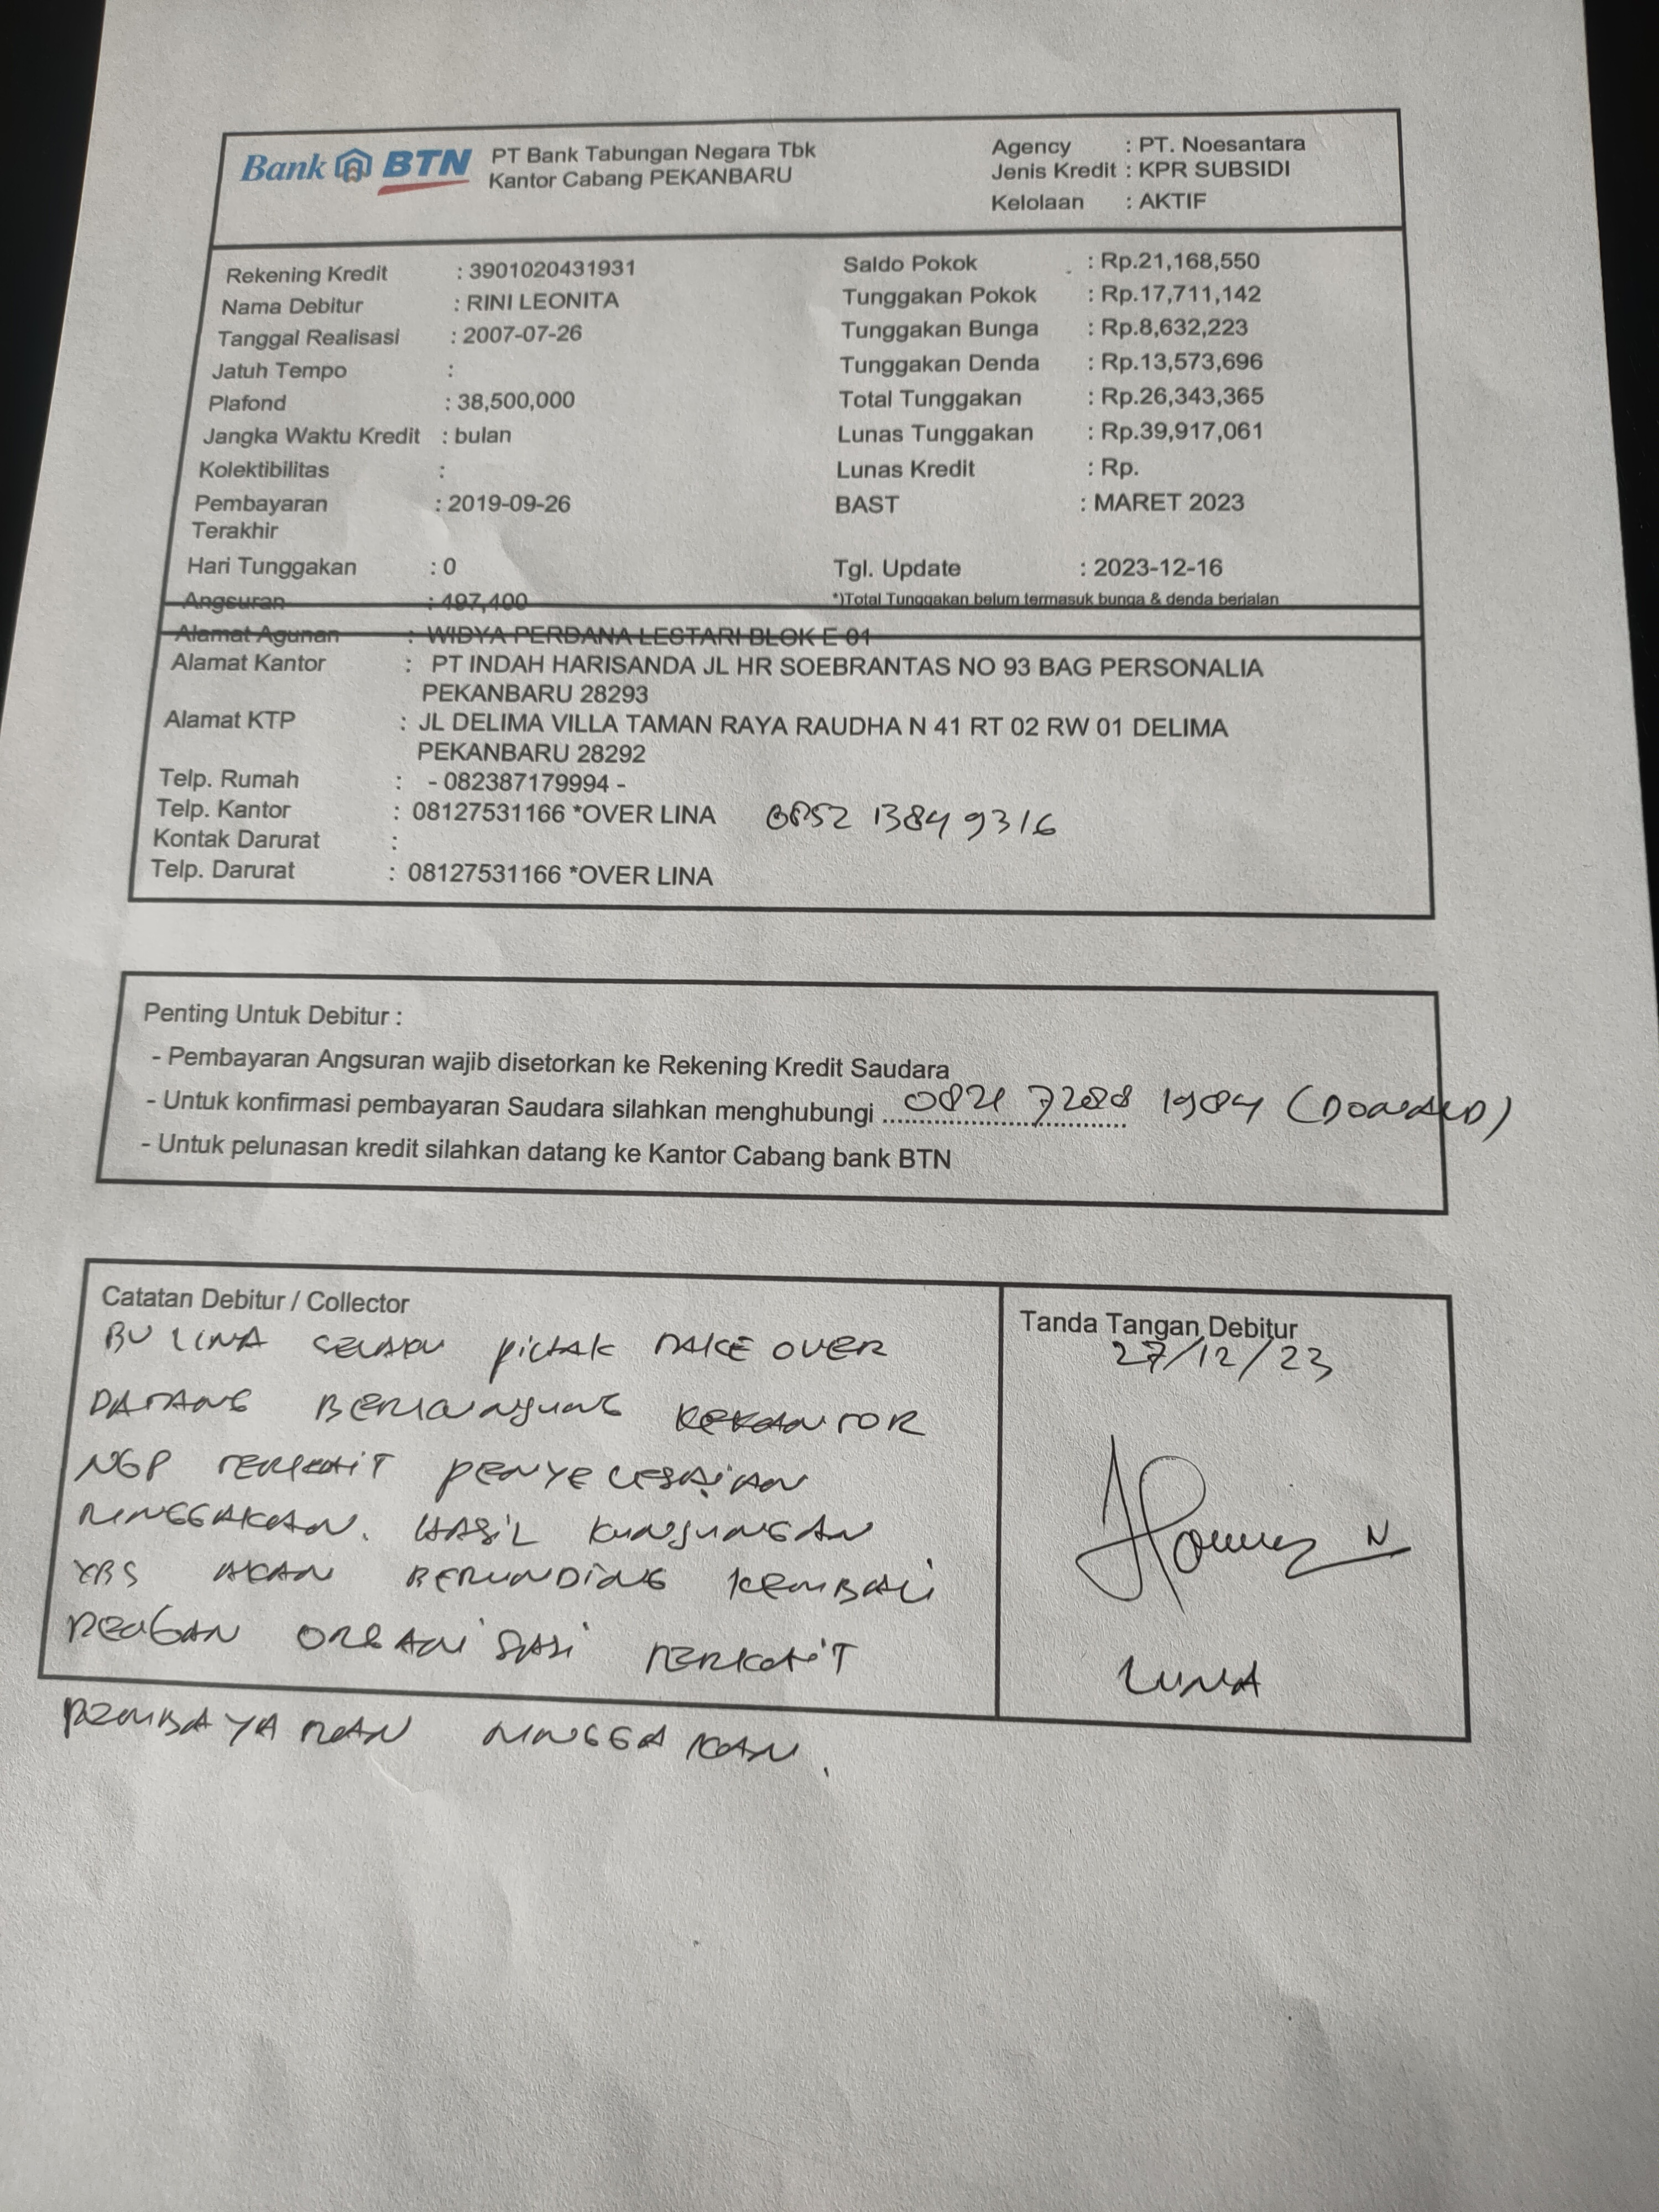 Bank BTN
PT Bank Tabungan Negara Tbk
Kantor Cabang PEKANBARU
Agency : PT. Noesantara
Jenis Kredit : KPR SUBSIDI
Kelolaan : AKTIF
Rekening Kredit : 3901020431931
Nama Debitur : RINI LEONITA
Tanggal Realisasi : 2007-07-26
Jatuh Tempo :
Plafond : 38,500,000
Jangka Waktu Kredit : bulan
Kolektibilitas :
Pembayaran Terakhir : 2019-09-26
Hari Tunggakan : 0
Angsuran : 497,400
Saldo Pokok : Rp.21,168,550
Tunggakan Pokok : Rp.17,711,142
Tunggakan Bunga : Rp.8,632,223
Tunggakan Denda : Rp.13,573,696
Total Tunggakan : Rp.26,343,365
Lunas Tunggakan : Rp.39,917,061
Lunas Kredit : Rp.
BAST : MARET 2023
Tgl. Update : 2023-12-16
*)Total Tunggakan belum termasuk bunga & denda berjalan
Alamat Agunan : WIDYA PERDANA LESTARI BLOK E 01
Alamat Kantor : PT INDAH HARISANDA JL HR SOEBRANTAS NO 93 BAG PERSONALIA
PEKANBARU 28293
Alamat KTP : JL DELIMA VILLA TAMAN RAYA RAUDHA N 41 RT 02 RW 01 DELIMA
PEKANBARU 28292
Telp. Rumah : - 082387179994 -
Telp. Kantor : 08127531166 *OVER LINA 0852 1384 9316
Kontak Darurat :
Telp. Darurat : 08127531166 *OVER LINA
Penting Untuk Debitur :
- Pembayaran Angsuran wajib disetorkan ke Rekening Kredit Saudara
- Untuk konfirmasi pembayaran Saudara silahkan menghubungi 0821 7288 1984 (DONALD)
- Untuk pelunasan kredit silahkan datang ke Kantor Cabang bank BTN
Catatan Debitur / Collector
BU LINA SELAKU PIHAK TAKE OVER
DATANG BERKUNJUNG KEKANTOR
NGP TERKAIT PENYELESAIAN
TUNGGAKAN. HASIL KUNJUNGAN
YBS AKAN BERUNDING KEMBALI
DENGAN ORGANISASI TERKAIT
PEMBAYARAN TUNGGAKAN.
Tanda Tangan Debitur
27/12/23
LINA